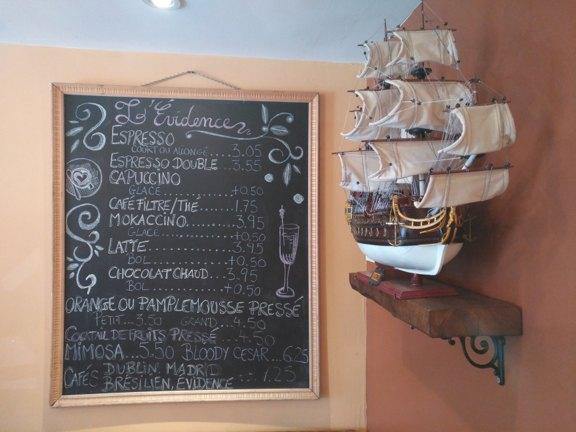 L'Évidence
ESPRESSO
COURT OU ALLONGÉ......3.05
ESPRESSO DOUBLE...3.55
CAPUCCINO
GLACÉ............+0.50
CAFÉ FILTRE/THÉ......1.75
MOKACCINO.........3.95
GLACÉ............+0.50
LATTE..............3.95
BOL..............+0.50
CHOCOLAT CHAUD...3.95
BOL..............+0.50
ORANGE OU PAMPLEMOUSSE PRESSÉ
PETIT...3.50 GRAND...4.50
COCKTAIL DE FRUITS PRESSÉ...4.50
MIMOSA...5.50 BLOODY CESAR...6.25
CAFÉS DUBLIN, MADRID
BRÉSILIEN, ÉVIDENCE 7.25